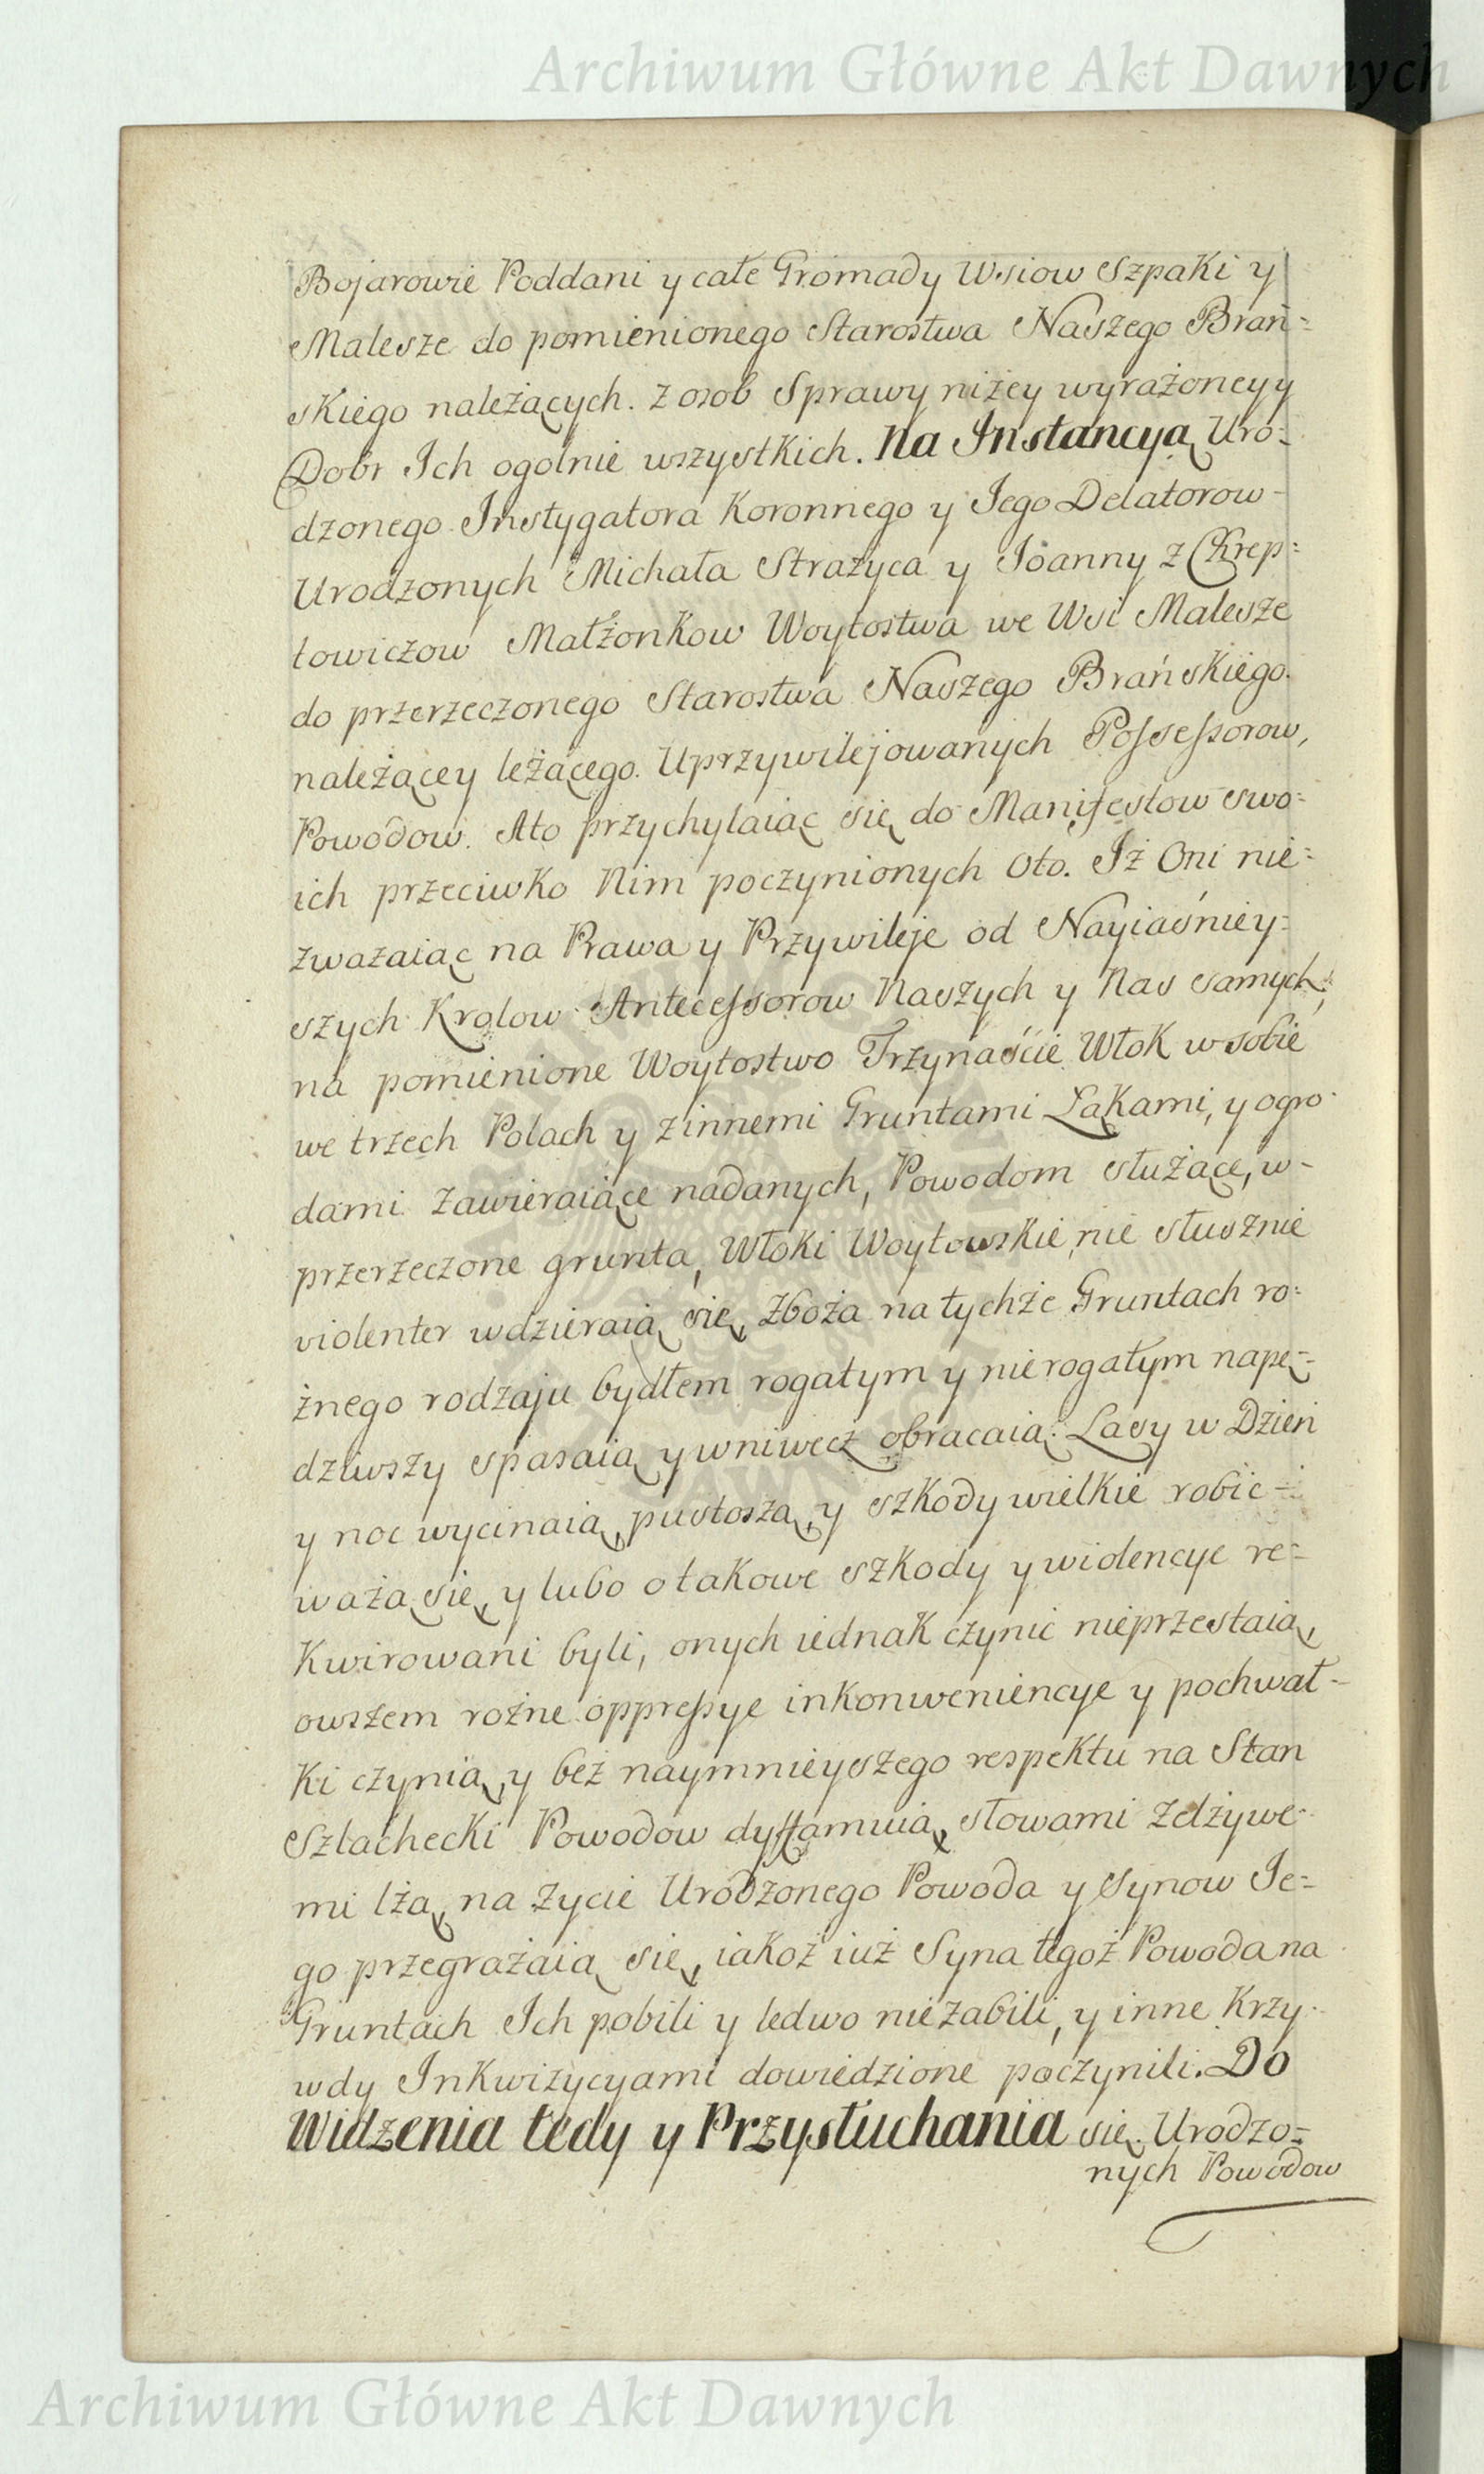 Archiwum Główne Akt Dawnych
Bojarowie Poddani y całe Gromady Wsiow Szpaki y
Malesze do pomienionego Starostwa Naszego Brań=
skiego należących. z osob Sprawy niżey wyrażoney y
Dobr Ich ogolnie wszystkich. Na Instancyą Uro=
dzonego Instygatora Koronnego y Jego Delatorow-
Urodzonych Michała Strażyca y Joanny z Krep=
towiczow Małżonkow Woytostwa we Wsi Malesze
do przerzeczonego Starostwa Naszego Brańskiego.
należącey leżącego. Uprzywilejowanych Possessorow,
Powodow. Ato przychylaiąc się do Manifestow swo=
ich przeciwko Nim poczynionych Oto. Iż Oni nie=
zważaiąc na Prawa y Przywileje od Nayiaśniey=
szych Krolow Antecessorow Naszych y Nas samych,
na pomienione Woytostwo Trzynaście Włok w sobie
we trzech Polach y z innemi Gruntami Łąkami, y ogro-
dami zawieraiące nadanych, Powodom służące, w-
przerzeczone grunta, Włoki Woytowskie, nie słusznie
violenter wdzieraią się, Zboża na tychże Gruntach ro=
żnego rodzaju bydłem rogatym y nierogatym napę=
dziwszy spasaią y wniwecz obracaią: Lasy w Dzień
y noc wycinaią, pustoszą, y szkody wielkie robić-
ważą się, y lubo o takowe szkody y wiolencye re=
kwirowani byli, onych iednak czynić nieprzestaią,
owszem rożne oppressye inkonweniencye y pochwał-
ki czynią, y bez naymnieyszego respektu na Stan
Szlachecki Powodow dyffamuią, słowami zelżywe-
mi lżą, na Życie Urodzonego Powoda y Synow Je=
go przegrażaią się, iakoż iuż Syna tegoż Powoda na
Gruntach Ich pobili y ledwo niezabili, y inne Krzy-
wdy Inkwizycyami dowiedzione poczynili. Do
Widzenia tedy y Przysłuchania się Urodzo=
nych Powodow
Archiwum Główne Akt Dawnych